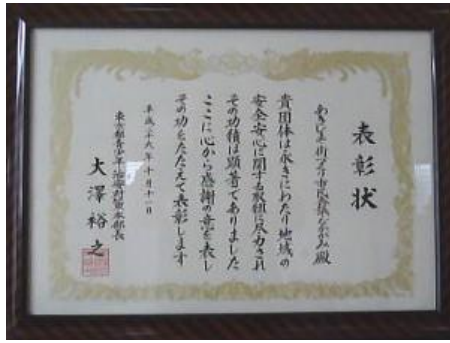 表彰状
あきしま街づくり市民会議 殿
貴団体は永きにわたり地域の
安全安心に関する取組に尽力され
その功績は顕著でありました
ここに心から感謝の意を表し
その功をたたえて表彰します
平成二十六年十月十一日
東京都青少年・治安対策本部長
大澤裕之